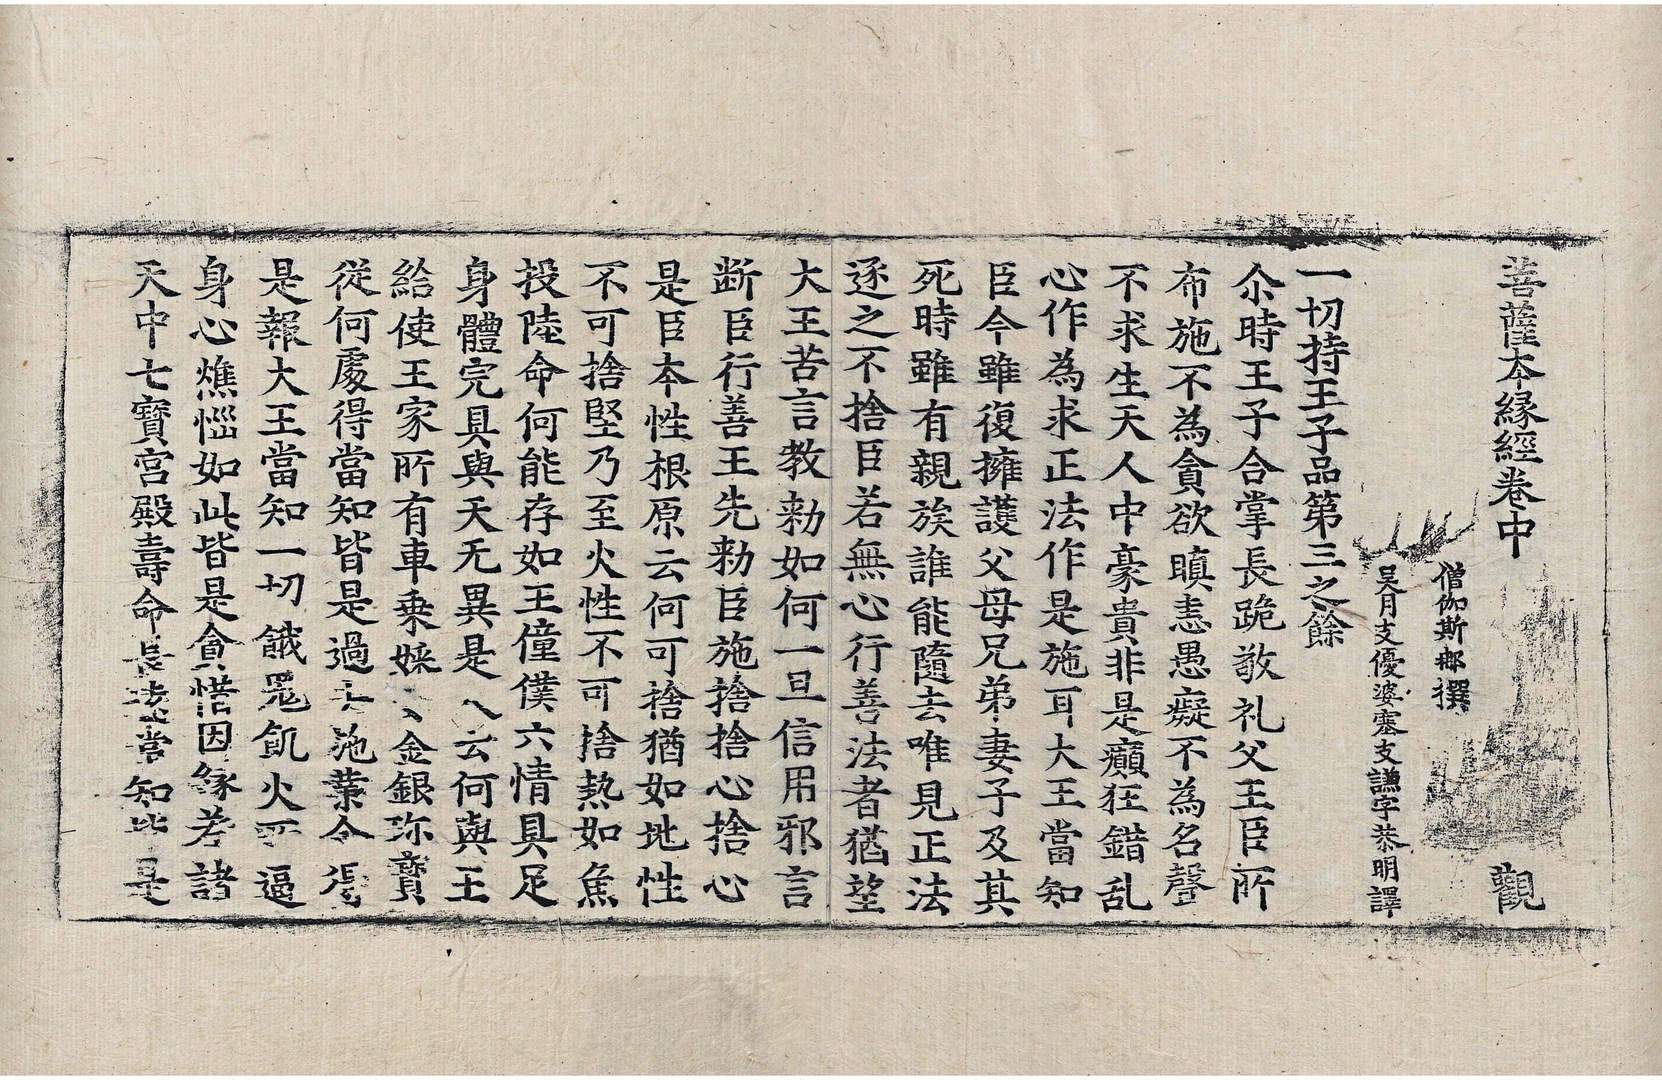 菩薩本緣經卷中 觀
僧伽斯那撰
吳月支優婆塞支謙字恭明譯
一切持王子品第三之餘
尒時王子合掌長跪敬礼父王臣所
布施不為貪欲瞋恚愚癡不為名聲
不求生天人中豪貴非是癲狂錯乱
心作為求正法作是施耳大王當知
臣今雖復擁護父母兄弟妻子及其
死時雖有親族誰能隨去唯見正法
逐之不捨臣若無心行善法者猶望
大王苦言教勑如何一旦信用邪言
断臣行善王先勑臣施捨捨心捨心
是臣本性根原云何可捨猶如地性
不可捨堅乃至火性不可捨熱如魚
投陸命何能存如王僮僕六情具足
身體完具與天无異是人云何與王
給使王家所有車乗婇女金銀珎寶
從何處得當知皆是過去施業今得
是報大王當知一切餓鬼飢火所逼
身心燋惱如此皆是貪惜因緣若諸
天中七寶宮殿壽命長遠當知皆是